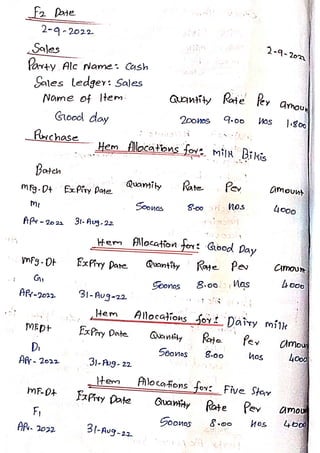 F2 Date
2-9-2022
2-9-2022
Sales
Party A/c Name: Cash
Sales Ledger: Sales
Name of Item Quantity Rate Per amoun
Good day 200nos 9.00 nos 1.800
Purchase
Item Allocations for: Milk Bikis
Batch
Mfg.Dt Expiry Date Quantity Rate Per amount
M1 500nos 8.00 nos 4000
APr-2022 31-Aug-22
Item Allocation for: Good Day
Mfg.Dt Expiry Date Quantity Rate Per amount
G1 500nos 8.00 nos 4000
APr-2022 31-Aug-22
Item Allocations for: Dairy milk
MFDt Expiry Date Quantity Rate Per amou
D1 500nos 8.00 nos 4000
APr-2022 31-Aug-22
Item Allocations for: Five Star
MF.Dt Expiry Date Quantity Rate Per amou
F1 500nos 8.00 nos 400
APr-2022 31-Aug-22